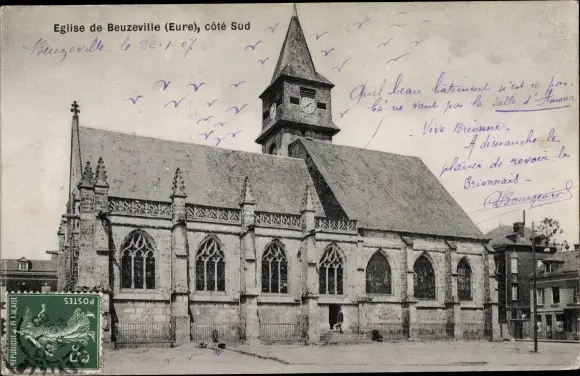 Eglise de Beuzeville (Eure), côté Sud
Beuzeville, le 22-1-07
Quel beau bâtiment n'est ce pas
là ne vaut pas la salle d'Amour
Vive Brionne.
A demain le
plaisir de revoir le
Brionnais
Bourgeois